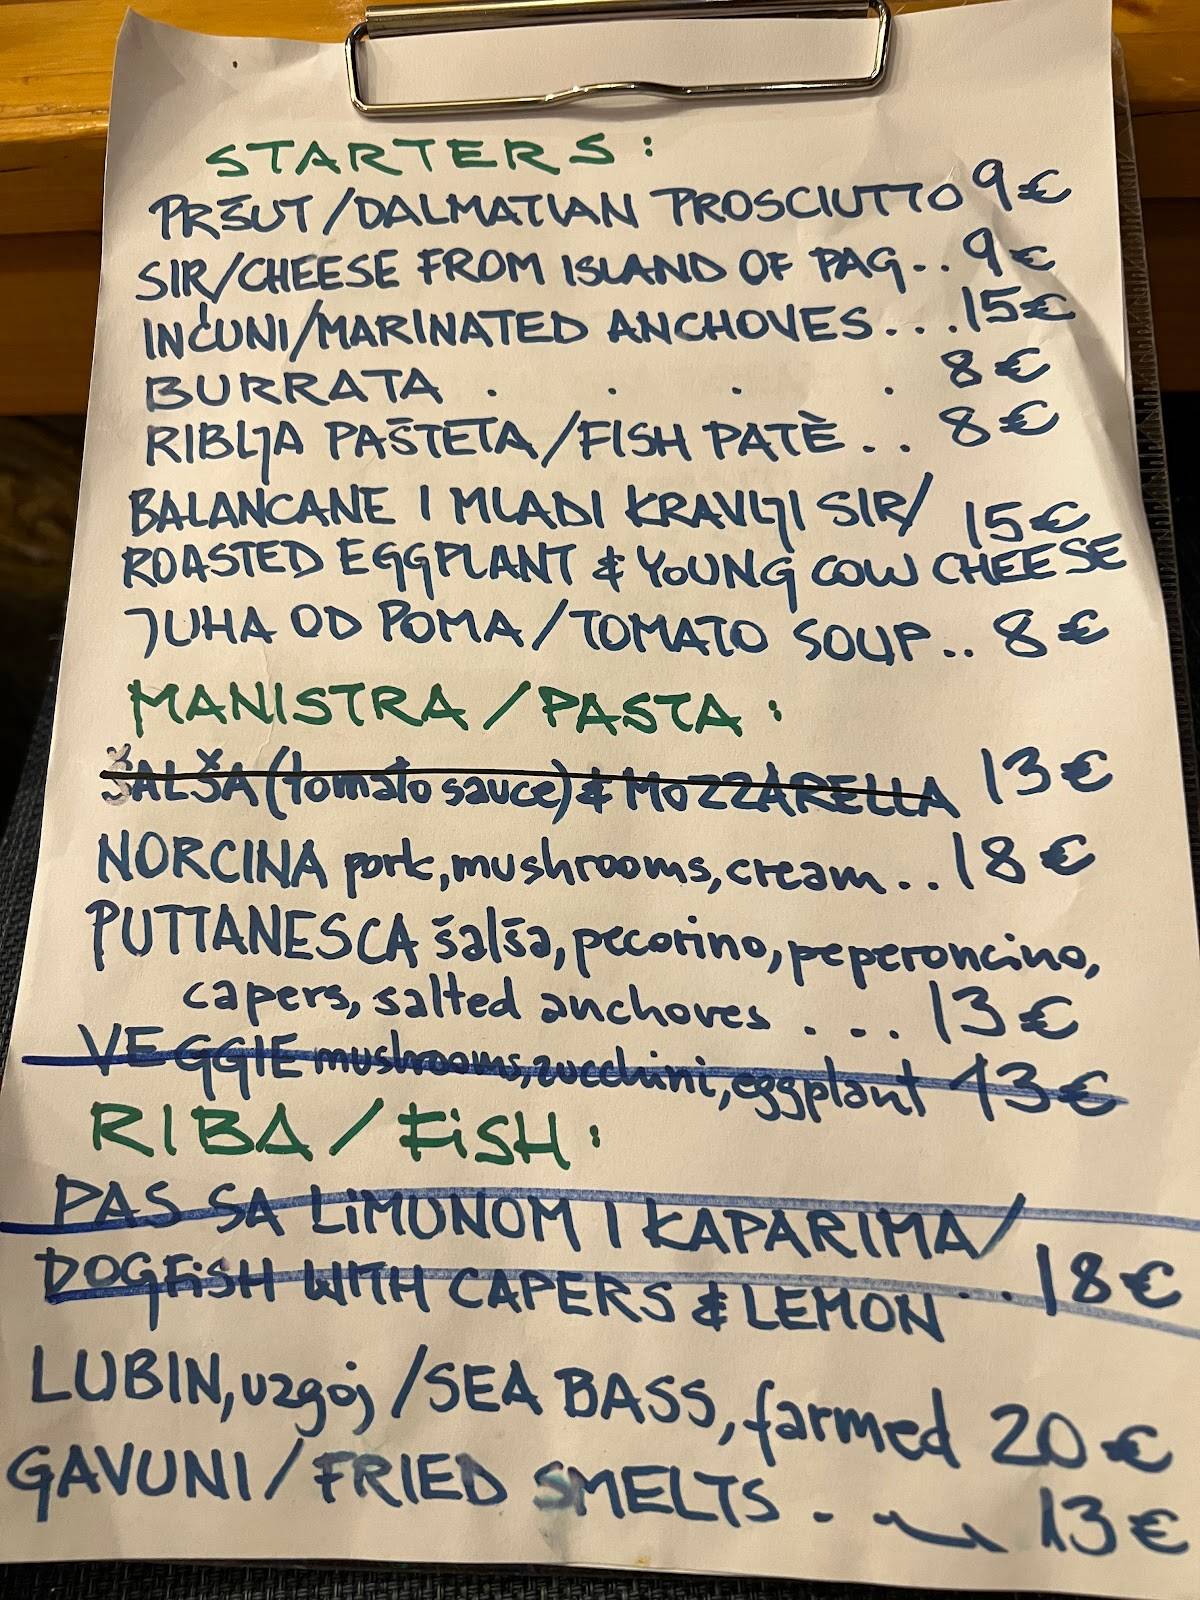 STARTERS:
PRŠUT/DALMATIAN PROSCIUTTO 9€
SIR/CHEESE FROM ISLAND OF PAG.. 9€
INĆUNI/MARINATED ANCHOVES...15€
BURRATA . . . . 8€
RIBLJA PAŠTETA/FISH PATÈ.. 8€
BALANCANE I MLADI KRAVLJI SIR/ 15€
ROASTED EGGPLANT & YOUNG COW CHEESE
JUHA OD POMA/TOMATO SOUP.. 8€
MANISTRA/PASTA:
ŠALŠA (tomato sauce) & MOZZARELLA 13€
NORCINA pork, mushrooms, cream.. 18€
PUTTANESCA šalša, pecorino, peperoncino,
capers, salted anchoves ... 13€
VEGGIE mushrooms, zucchini, eggplant 13€
RIBA/FiSH:
PAS SA LiMUNOM I KAPARIMA/
DOGFiSH WITH CAPERS & LEMON ... 18€
LUBIN, uzgoj/SEA BASS, farmed 20€
GAVUNI/FRIED SMELTS . 13€